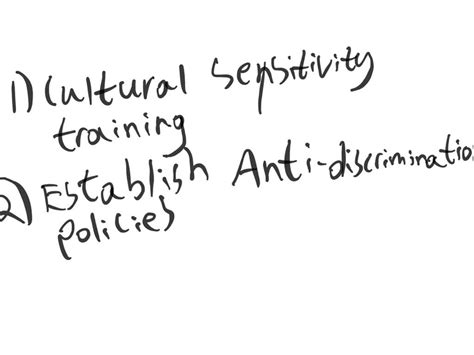 1) Cultural sensitivity
training
2) Establish Anti-discrimination
policies